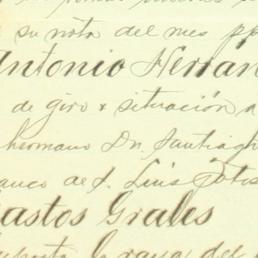 su nota del mes pp
Antonio Hernan
de giro & situación a
hermano Dn. Santiago
anco de S. Luis Potos
Gastos Grales